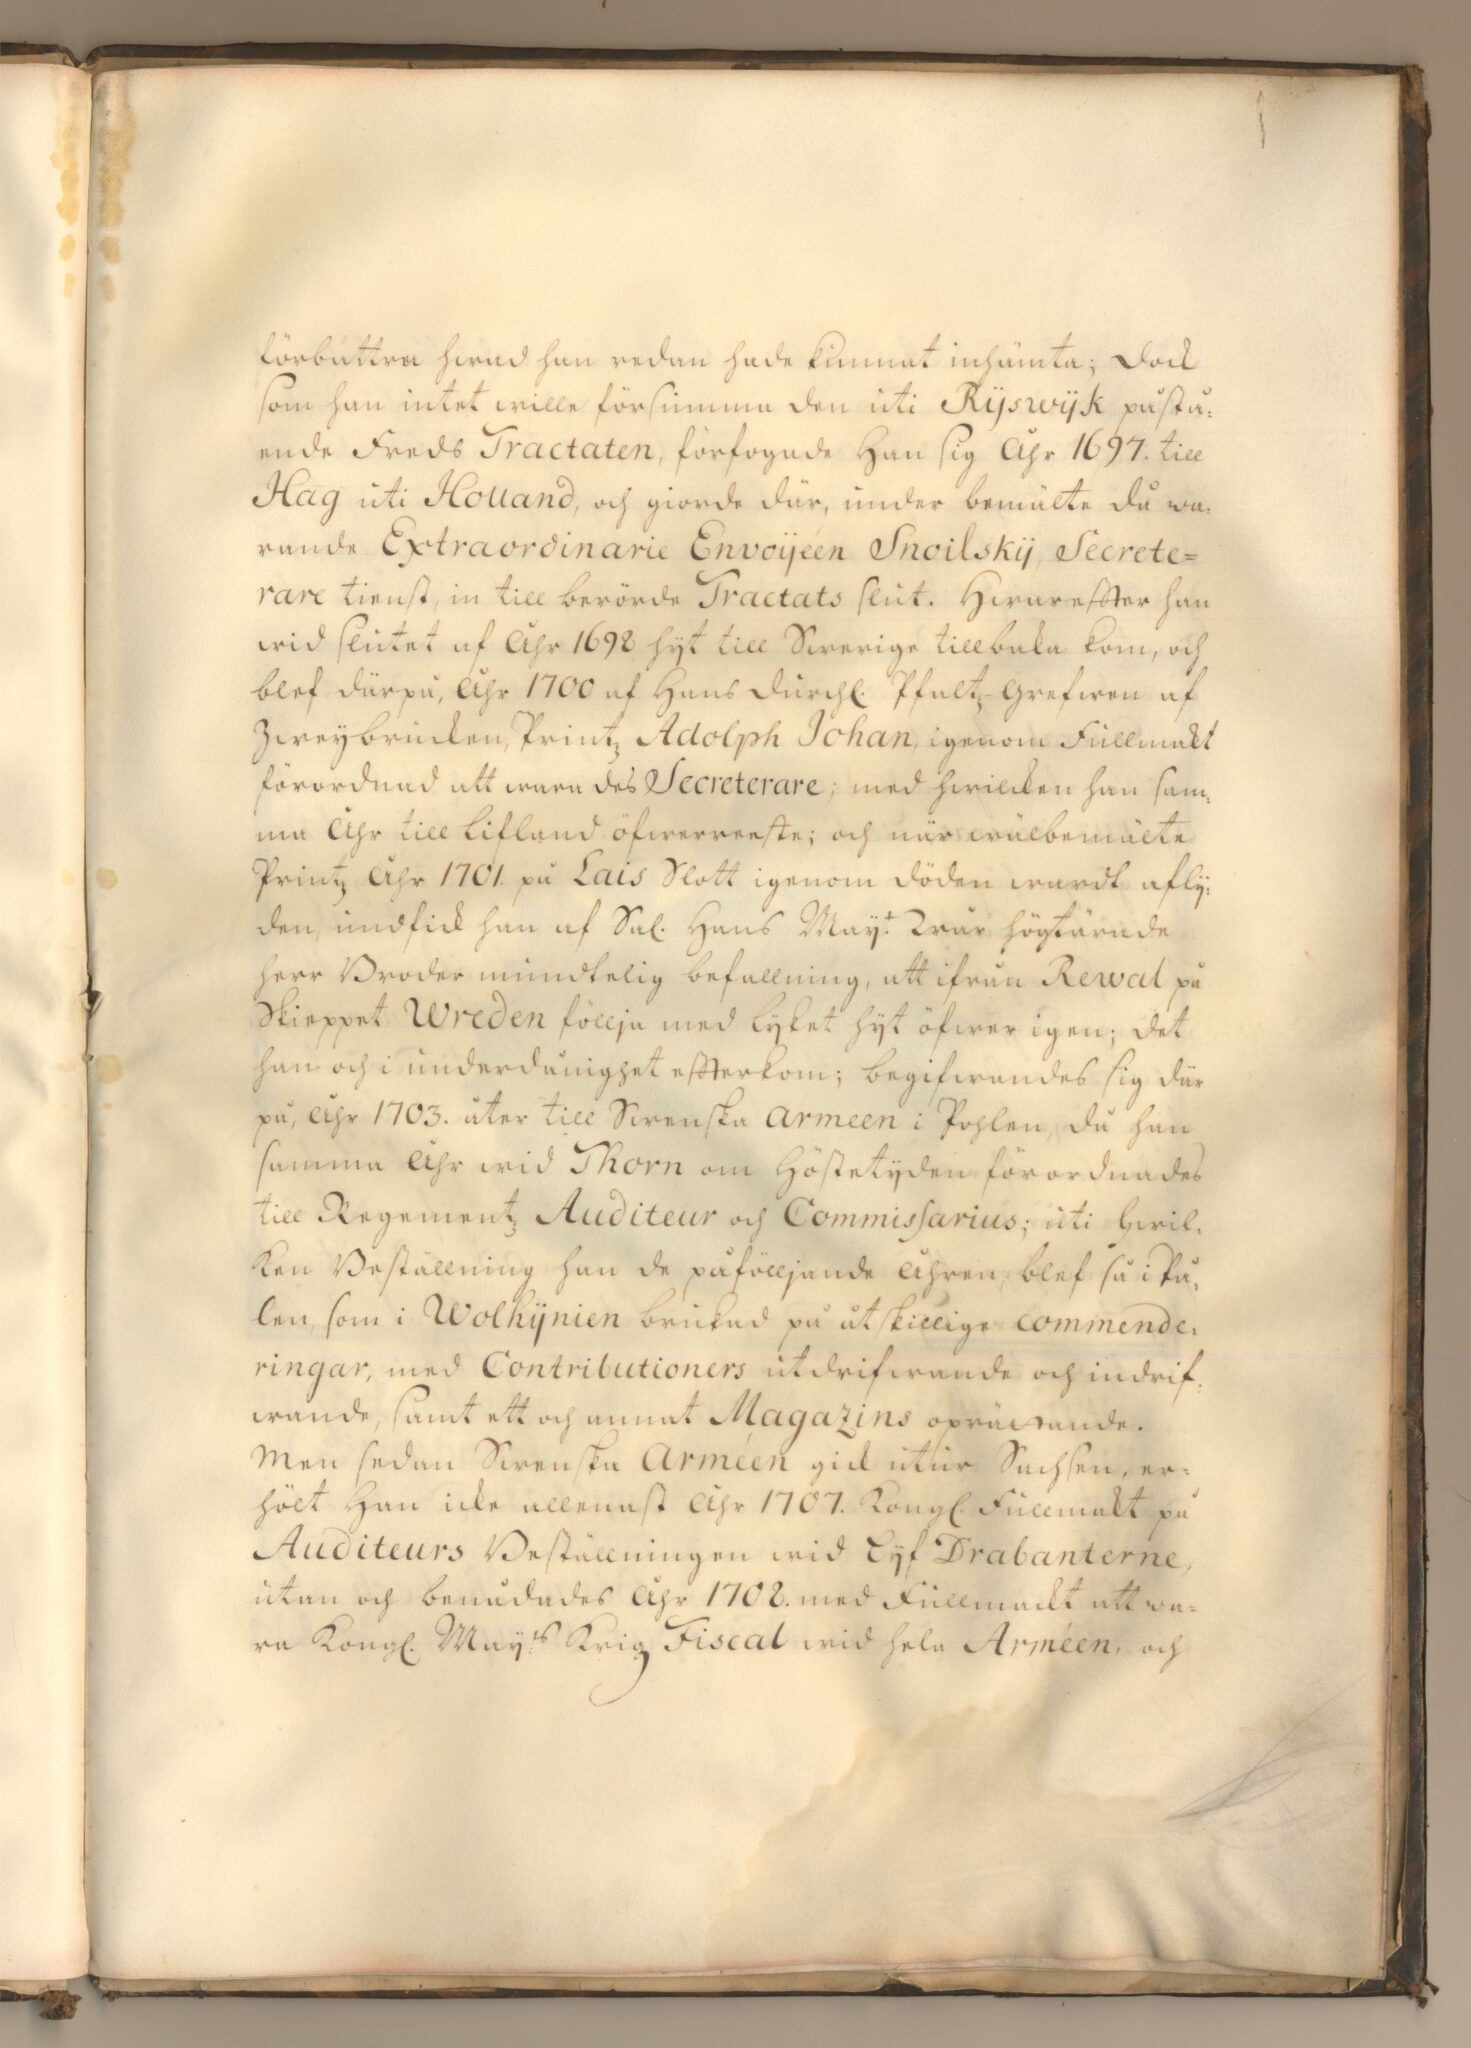 förbättra hwad han redan hade kunnat inhämta; dock
som han intet wille försumma den uti Rijswijk påstå:
ende Freds Tractaten, förfogade Han sig Åhr 1697. till
Hag uti Holland, och giorde där, under bemälte då wa:
rande Extraordinarie Envoijéen Snoilskij, Secrete=
rare tienst, in till berörde Tractats slut. Hwareffter han
wid slutet af Åhr 1698 hyt till Swerige tillbaka kom, och
blef därpå, Åhr 1700 af Hans Durchl. Pfaltz-Grefwen af
Zweybrücken, Printz Adolph Johan, igenom Fullmakt
förordnad att wara des Secreterare; med hwilcken han sam:
ma Åhr till Lifland öfwerreeste; och när wälbemälte
Printz Åhr 1701. på Lais Slott igenom döden wardt afly:
den, undfick han af Sal. Hans May:t Wår högtärade
herr Broder mundtelig befallning, att ifrån Rewal på
Skieppet Wreden föllja med lyket hyt öfwer igen; det
han och i underdånighet effterkom; begifwandes sig där
på, Åhr 1703. åter till Swenska Armeen i Pohlen, då han
samma Åhr wid Thorn om Höstetijden förordnades
till Regementz Auditeur och Commissarius; uti hwil:
ken Beställning han de påfölljande Åhren, blef så i På:
len, som i Wolhijnien brukad på åtskillige commende:
ringar, med Contributioners utdrifwande och indrif:
wande, samt ett och annat Magazins oprättande.
Men sedan Swenska Arméen gick utur Sachsen, er=
hölt Han icke allenast Åhr 1707. Kongl. Fullmakt på
Auditeurs Beställningen wid Lyf Drabanterne,
utan och benådades Åhr 1708. med Fullmackt att wa=
ra Kongl. May:ts Krigz Fiscal wid hela Arméen, och